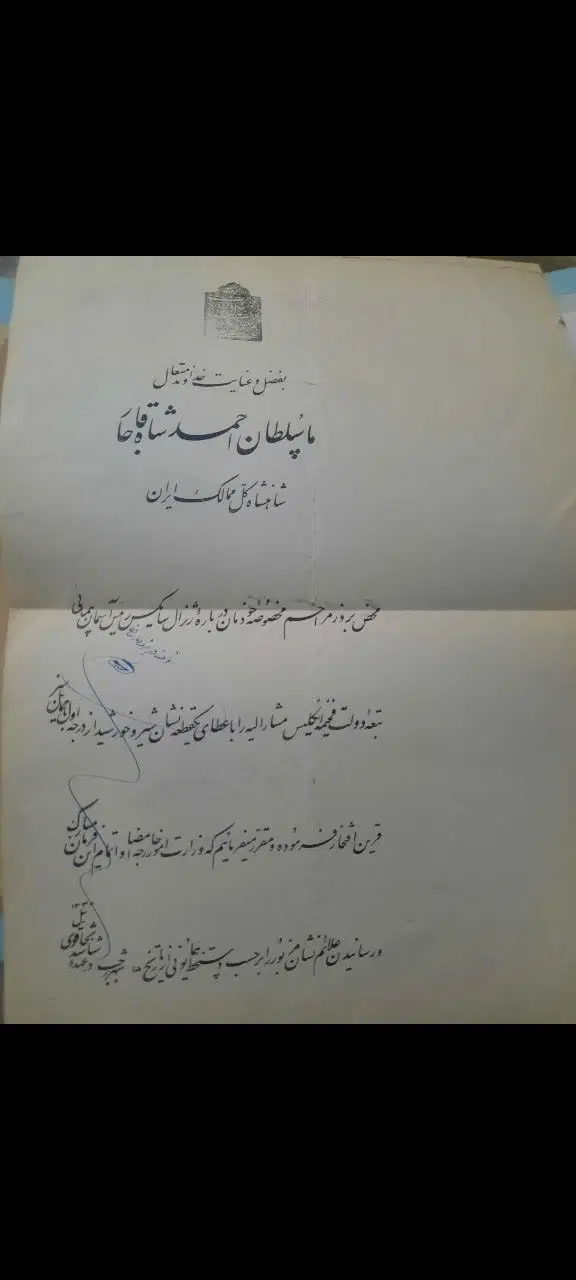 بفضل و عنایت خداوند متعال
ما سلطان احمد شاه قاجار
شاهنشاه کل ممالک ایران
محض بروز مراحم مخصوصه خودمان درباره ژنرال سایکس رئیس آسمان پیمائی
تبعه دولت فخیمه انگلیس مشارالیه را با عطای یکقطعه نشان شیر و خورشید از درجه اول با حمایل سبز
قرین افتخار فرموده و مقرر میفرمائیم که وزارت امور خارجه امضا و اتمام این فرمان مبارک
و رسانیدن علائم نشان مزبور را بر حسب دستخط همایونی از تاریخ ۱۵ شهر رجب در عهده شناسد